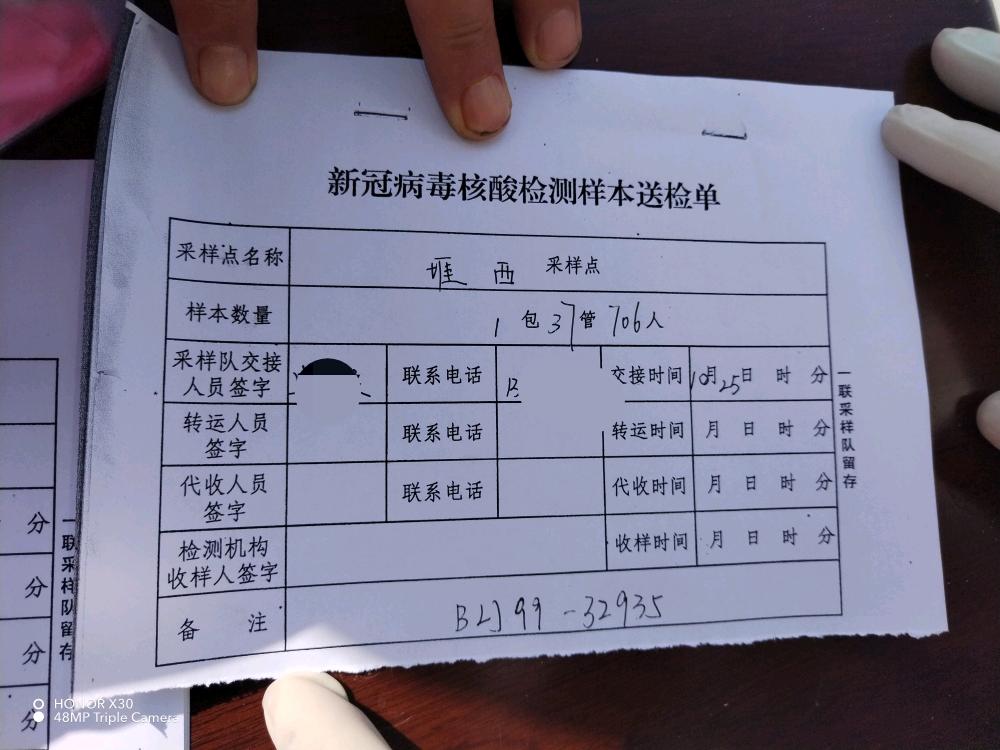 新冠病毒核酸检测样本送检单
采样点名称 堐西 采样点
样本数量 1包37管706人
采样队交接人员签字 联系电话 交接时间 10月25日 时 分
转运人员签字 联系电话 转运时间 月 日 时 分
代收人员签字 联系电话 代收时间 月 日 时 分
检测机构收样人签字 收样时间 月 日 时 分
备 注 BLJ99-32935
一联采样队留存
分
分
分
分
一联采样队留存
HONOR X30
48MP Triple Camera